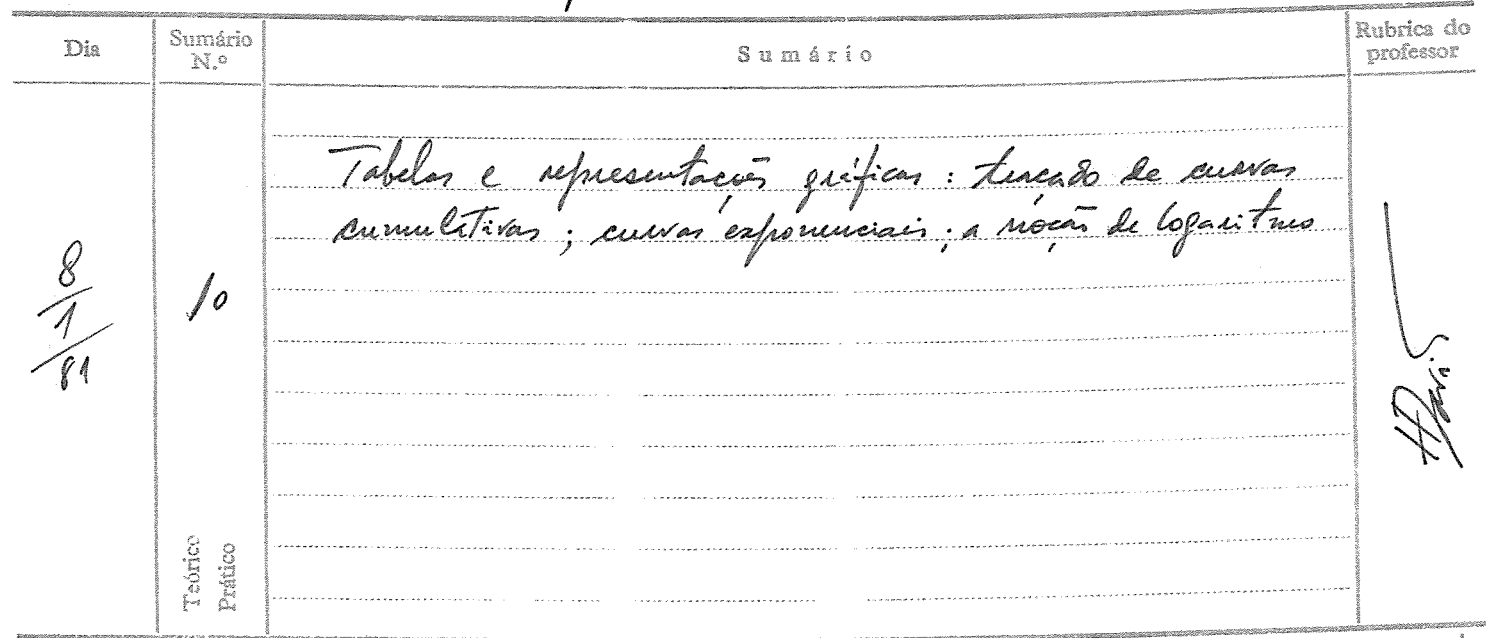 Dia
Sumário
N.º
Sumário
Rubrica do
professor
Tabelas e representações gráficas : traçado de curvas
cumulativas ; curvas exponenciais ; a noção de logaritmo
8/1/81
10
Teórico
Prático